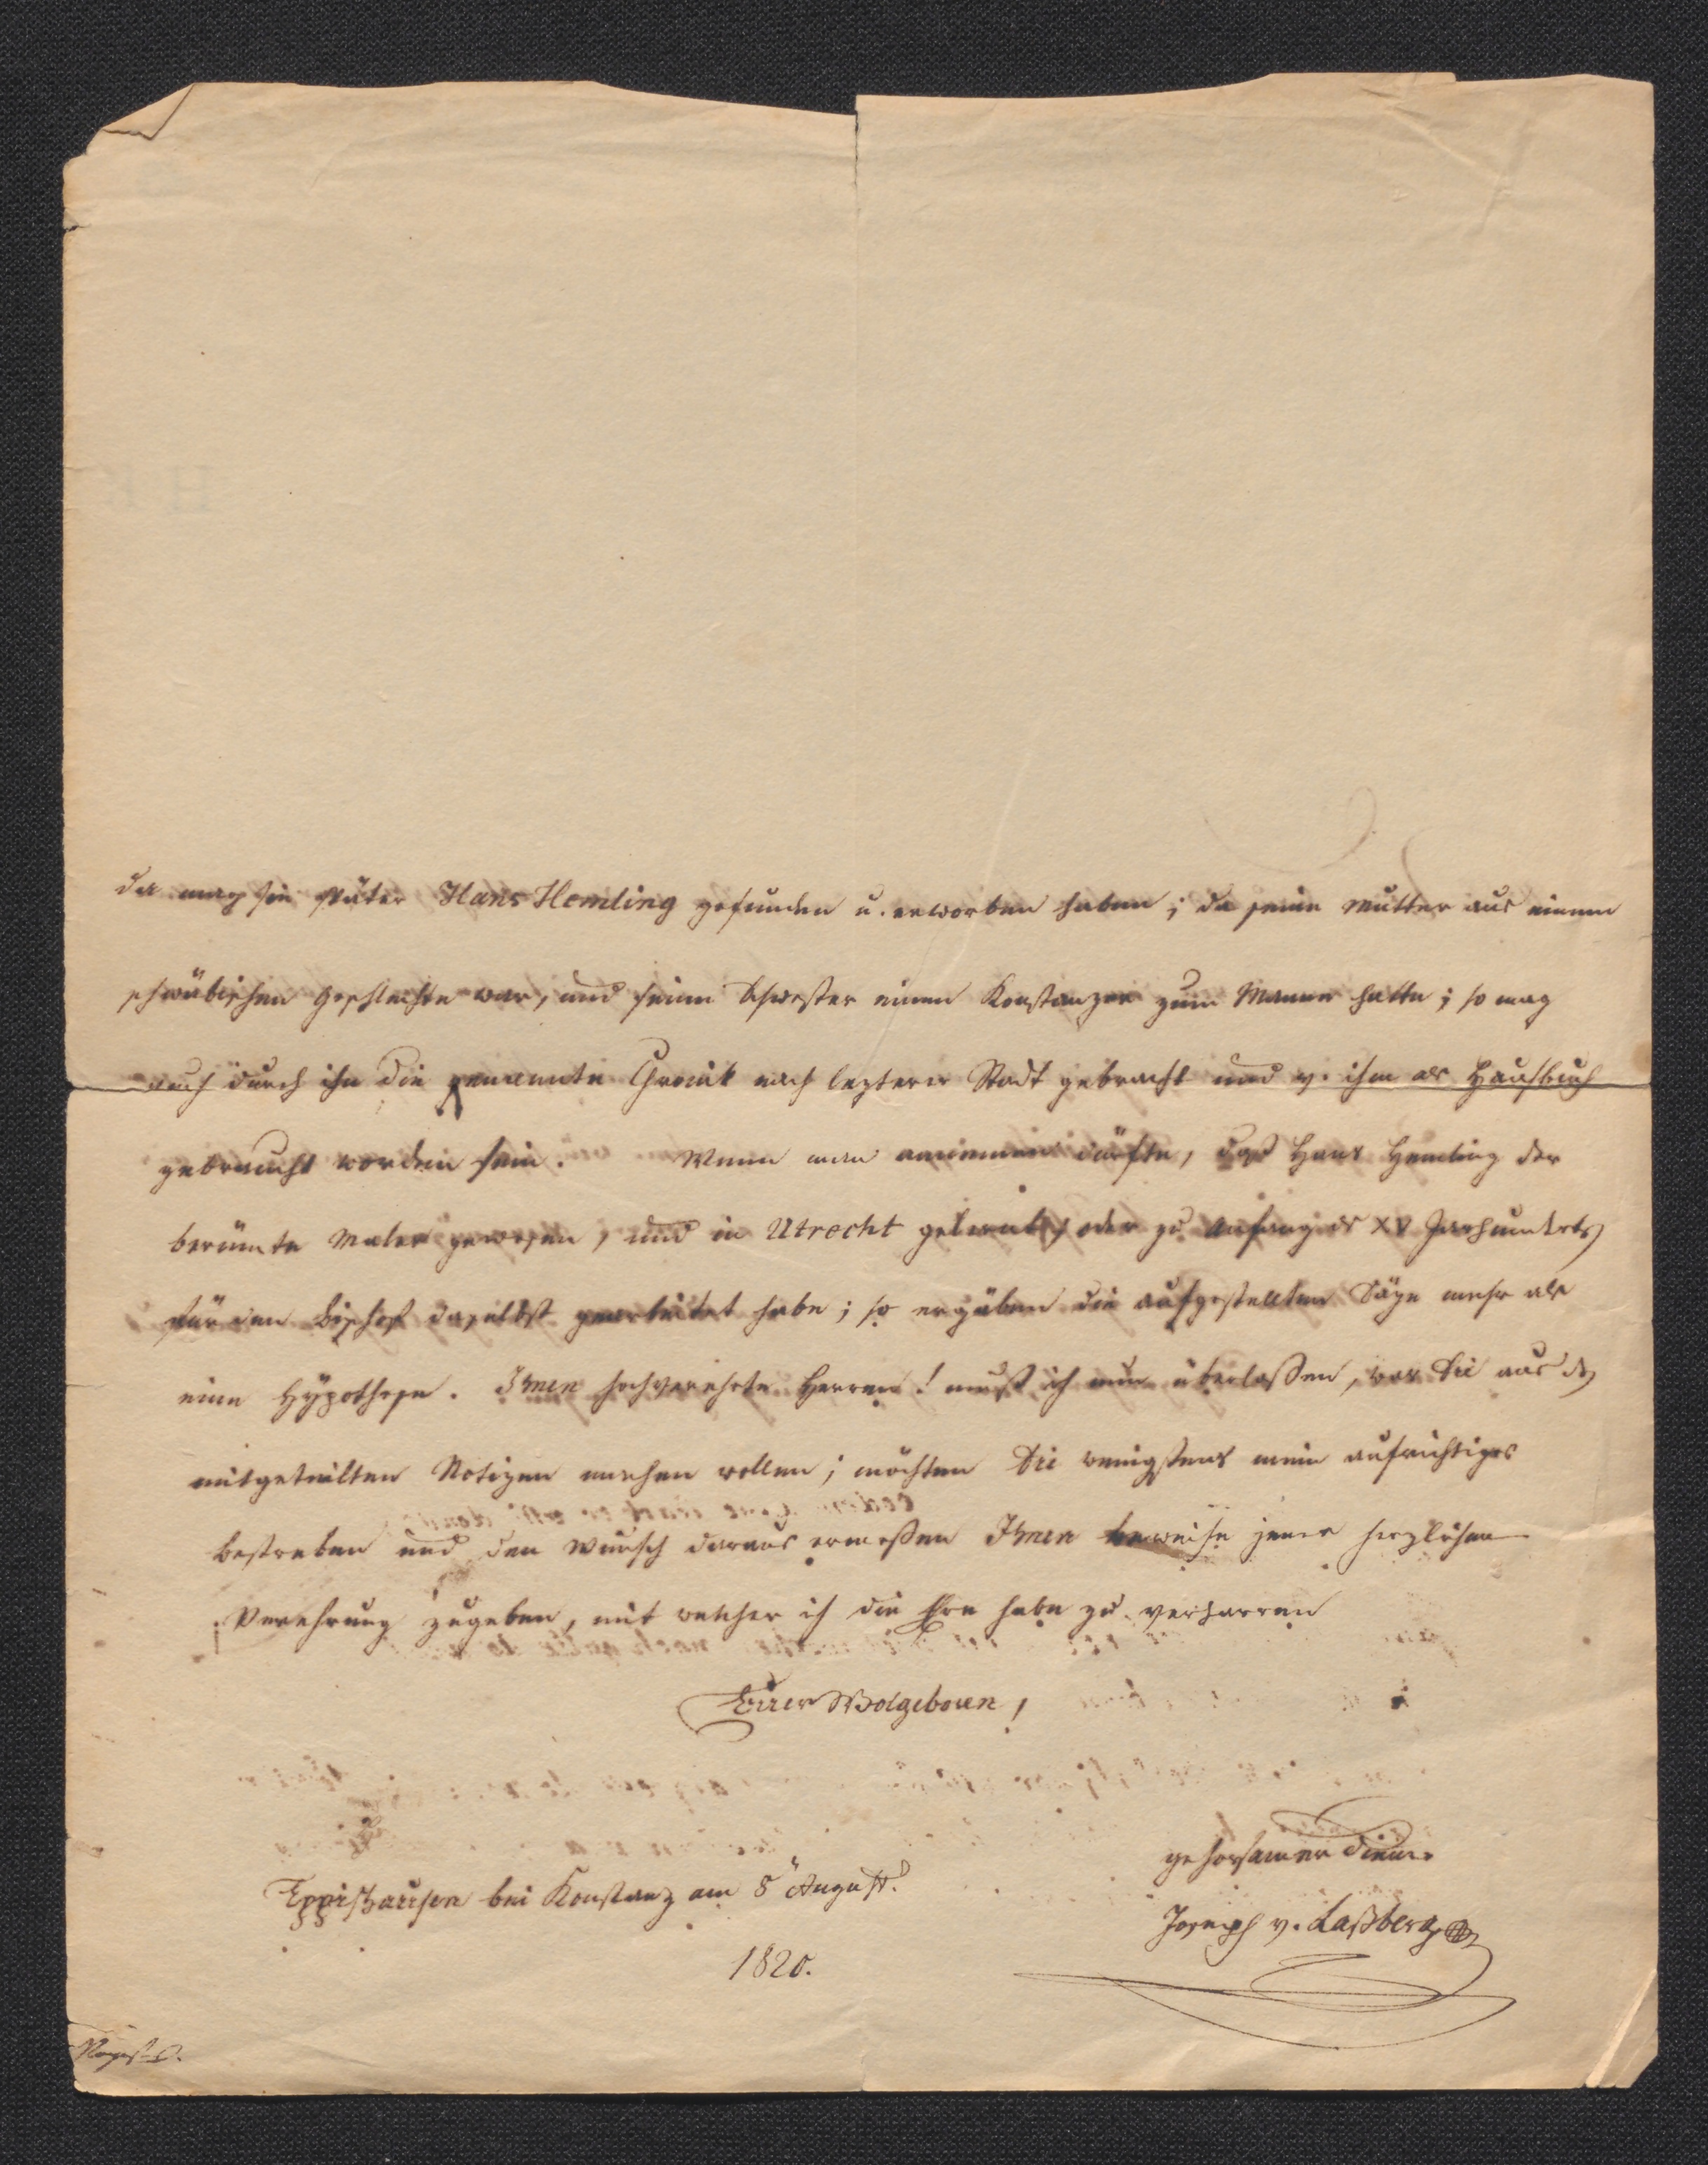 da mag sie später Hans Hemling gefunden u. erworben haben; da seine Mutter aus einem
schwäbischen Geschlechte war, und seine Schwester einen Konstanzer zum Manne hatte; so mag
auch durch ihn die genannte Cronik nach lezterer Stadt gebracht und v. ihm als Hausbuch
gebraucht worden sein. Wenn man annemen dürfte, daß Hans Hemling der
berümte Maler gewesen, und in Utrecht gelernt, oder zu Anfang des XV Jarhunderts,
für den Bischof daselbst gearbeitet habe; so ergäben die aufgestellten Säze mehr als
eine Hÿpothese. Ihnen hochverehrte Herren! muß ich nun überlaßen, was Sie aus den
mitgeteilten Notizen machen wollen; möchten Sie wenigstens mein aufrichtiges
bestreben und den Wunsch daraus ermeßen Ihnen beweise jener herzlichen
Verehrung zugeben, mit welcher ich die Ere habe zu verharren
Euer Wolgeboren!
gehorsamer Diener
Eppishausen bei Konstanz am 8 August.
Joseph v. Laßberg
1820.